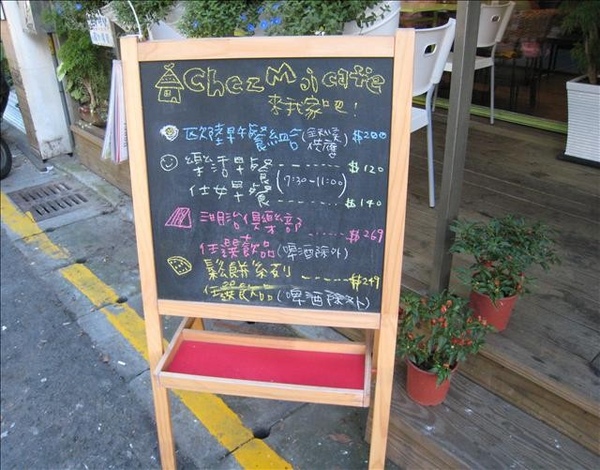 Chez Moi cafe
來我家吧！
歐陸早午餐組合(全天候供應) $200
樂活早餐 -------- $120
(7:30-11:00)
仕女早餐 -------- $140
湖泊俱樂部 ------ $269
任選飲品(啤酒除外)
鬆餅系列 ------ $249
任選飲品(啤酒除外)